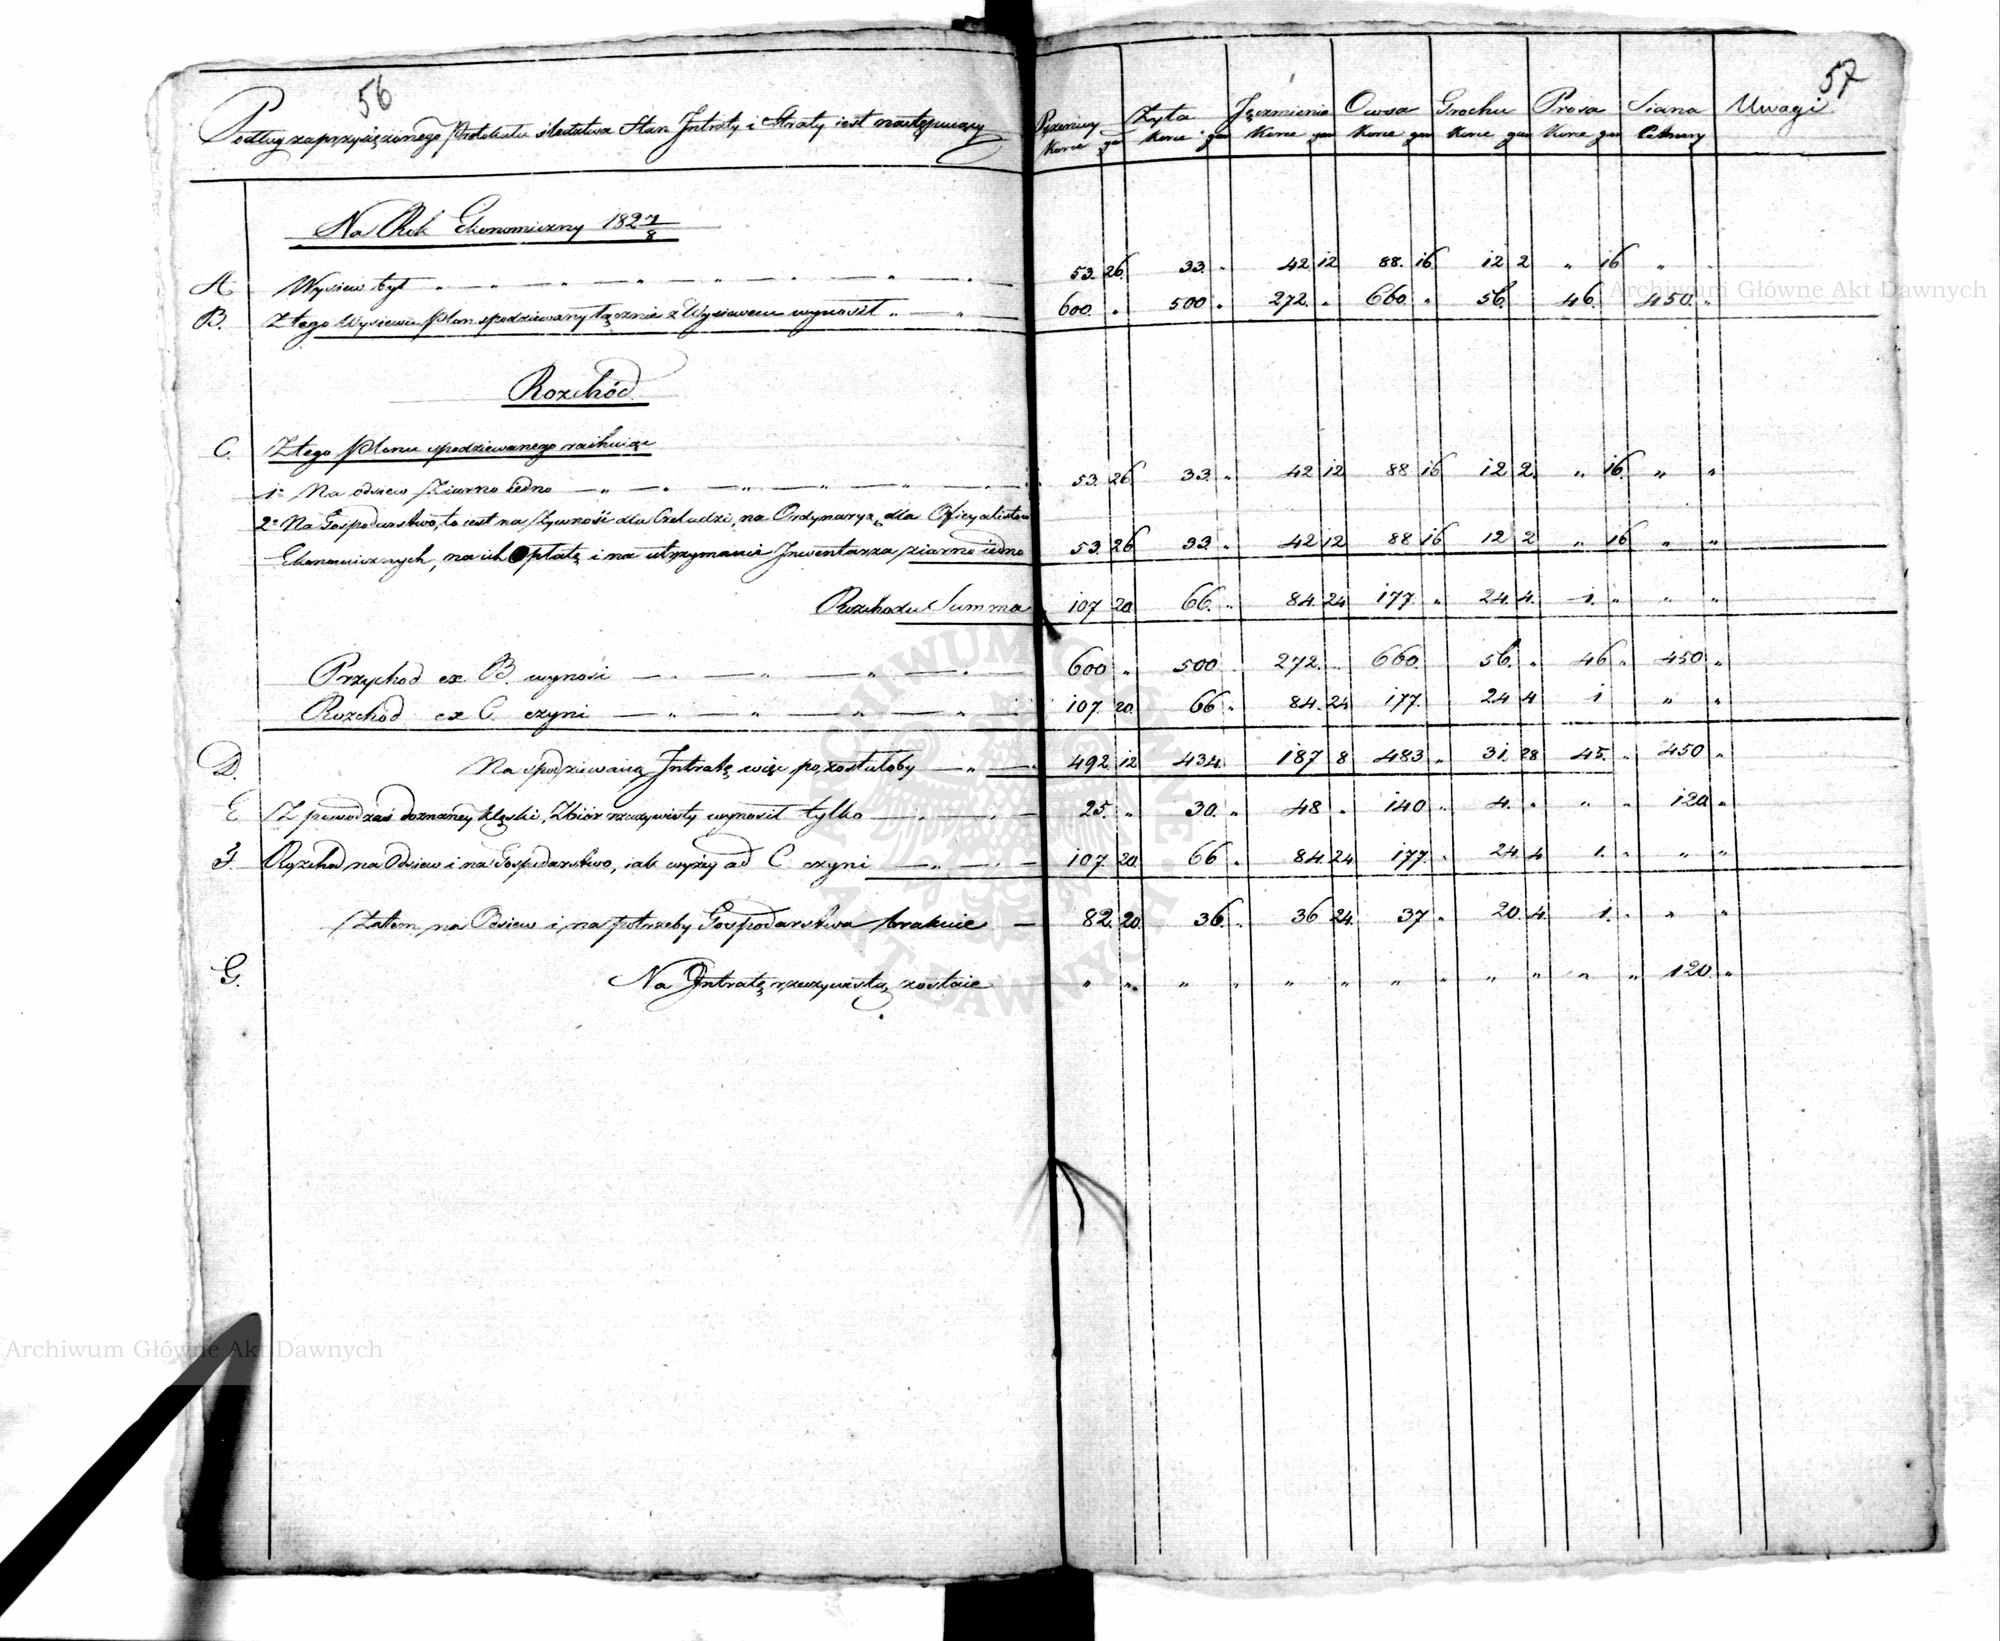 56
57
Podług zaprzysiężonego Protokułu śledztwa Stan Intraty i Straty iest następuiący
Pszenicy Żyta Jęczmienia Owsa Grochu Prosa Siana Uwagi
Korce gar Korce gar Korce gar Korce gar Korce gar Korce gar Cetnary
Na Rok Ekonomiczny 1827/8
A. Wysiew był 53. 26. 33. „ 42 12 88. 16 12 2 „ 16 „ „
B. Z tego Wysiewu Plon spodziewany łącznie z Wysiewem wynosił 600. „ 500 „ 272. „ 660. „ 56. 46. 450. „
Rozchód
C. Z tego Plonu spodziewanego rachuiąc
1o Na odsiew Ziarno iedno 53. 26 33. „ 42 12 88 16 12 2. „ 16. „ „
2o Na Gospodarstwo, to iest na Żywność dla Czeladzi, na Ordynaryą dla Oficyalistów
Ekonomicznych, na ich Opłatę i na utrzymanie Inwentarza ziarno iedno 53 26 33. „ 42 12 88 16 12 2 „ 16 „ „
Rozchodu Summa 107 20 66. „ 84. 24 177. „ 24. 4. 1. „ „ „
Przychod ex B. wynosi 600 „ 500 272. „ 660. 56. „ 46 „ 450 „
Rozchód ex C. czyni 107. 20. 66 „ 84. 24 177. 24 4 1 „ „
D. Na spodziewaną Intratę więc pozostałoby 492. 12 434. 187 8 483 „ 31. 28 45. „ 450 „
E. Z powodu zaś doznaney klęski, Zbiór rzeczywisty wynosił tylko 25. „ 30. „ 48 „ 140 „ 4. „ „ „ 120 „
F. Rozchod na Odsiew i na Gospodarstwo, iak wyżey ad C. czyni 107. 20. 66 „ 84. 24 177. „ 24. 4 1. „ „ „
Zatem na Odsiew i na potrzeby Gospodarstwa brakuie 82. 20. 36. „ 36 24. 37 „ 20. 4. 1. „ „ „
G. Na Intratę rzeczywistą zostaie „ „ „ „ „ „ „ „ „ „ „ „ 120. „
Archiwum Główne Akt Dawnych
ARCHIWUM GŁÓWNE AKT DAWNYCH
Archiwum Główne Akt Dawnych